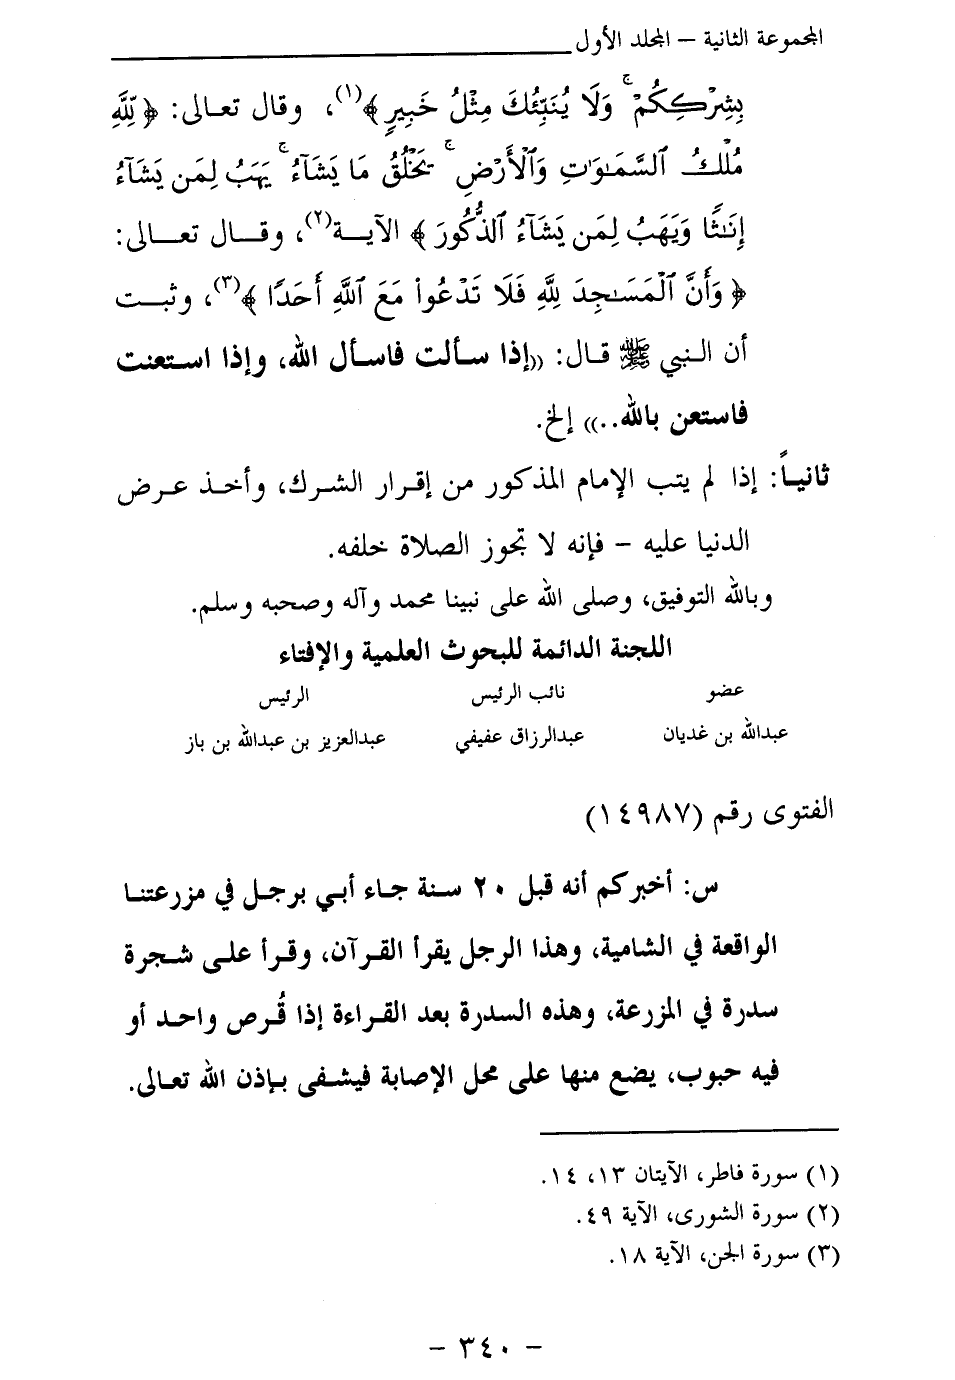 المجموعة الثانية – المجلد الأول
بِشِرْكِكُمْ ۚ وَلَا يُنَبِّئُكَ مِثْلُ خَبِيرٍ ﴾(١)، وقال تعالى: ﴿ لِّلَّهِ
مُلْكُ ٱلسَّمَـٰوَٰتِ وَٱلْأَرْضِ ۚ يَخْلُقُ مَا يَشَآءُ ۚ يَهَبُ لِمَن يَشَآءُ
إِنَـٰثًا وَيَهَبُ لِمَن يَشَآءُ ٱلذُّكُورَ ﴾ الآيـــة(٢)، وقـــال تعـــالى:
﴿ وَأَنَّ ٱلْمَسَـٰجِدَ لِلَّهِ فَلَا تَدْعُوا۟ مَعَ ٱللَّهِ أَحَدًا ﴾(٣)، وثبـــت
أن الـنبي ﷺ قـال: «إذا سـألت فاسـأل الله، وإذا اسـتعنت
فاستعن بالله..» إلخ.
ثانيـاً: إذا لم يتب الإمام المذكور من إقـرار الشـرك، وأخـذ عـرض
الدنيا عليه – فإنه لا تجوز الصلاة خلفه.
وبالله التوفيق، وصلى الله على نبينا محمد وآله وصحبه وسلم.
اللجنة الدائمة للبحوث العلمية والإفتاء
عضو نائب الرئيس الرئيس
عبدالله بن غديان عبدالرزاق عفيفي عبدالعزيز بن عبدالله بن باز
الفتوى رقم (١٤٩٨٧)
س: أخبركم أنه قبل ٢٠ سـنة جـاء أبـي برجـل في مزرعتنـا
الواقعة في الشامية، وهذا الرجل يقرأ القـرآن، وقـرأ علـى شـجرة
سدرة في المزرعة، وهذه السدرة بعد القـراءة إذا قُـرص واحـد أو
فيه حبوب، يضع منها على محل الإصابة فيشـفى بـإذن الله تعـالى.
(١) سورة فاطر، الآيتان ١٣، ١٤.
(٢) سورة الشورى، الآية ٤٩.
(٣) سورة الجن، الآية ١٨.
– ٣٤٠ –